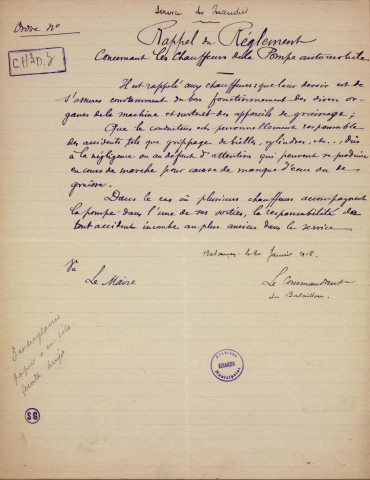 Service des Incendies
Ordre No
C.H2D.3
Rappel du Règlement
Concernant les Chauffeurs de la Pompe automobile
Il est rappelé aux chauffeurs que leur devoir est de
s'assurer constamment du bon fonctionnement des divers or-
ganes de la machine et surtout des appareils de graissage;
Que le conducteur est personnellement responsable
des accidents tels que grippage de bielles, cylindres, etc..., dûs
à la négligence ou au défaut d'attention qui peuvent se produire
en cours de marche pour cause de manque d'eau ou de
graisse.
Dans le cas où plusieurs chauffeurs accompagnent
la pompe dans l'une de ses sorties, la responsabilité de
tout accident incombe au plus ancien dans le service
Besançon, le 20 Janvier 1918.
Vu
Le Maire
Le Commandant
du Bataillon
papier
BESANÇON
SG